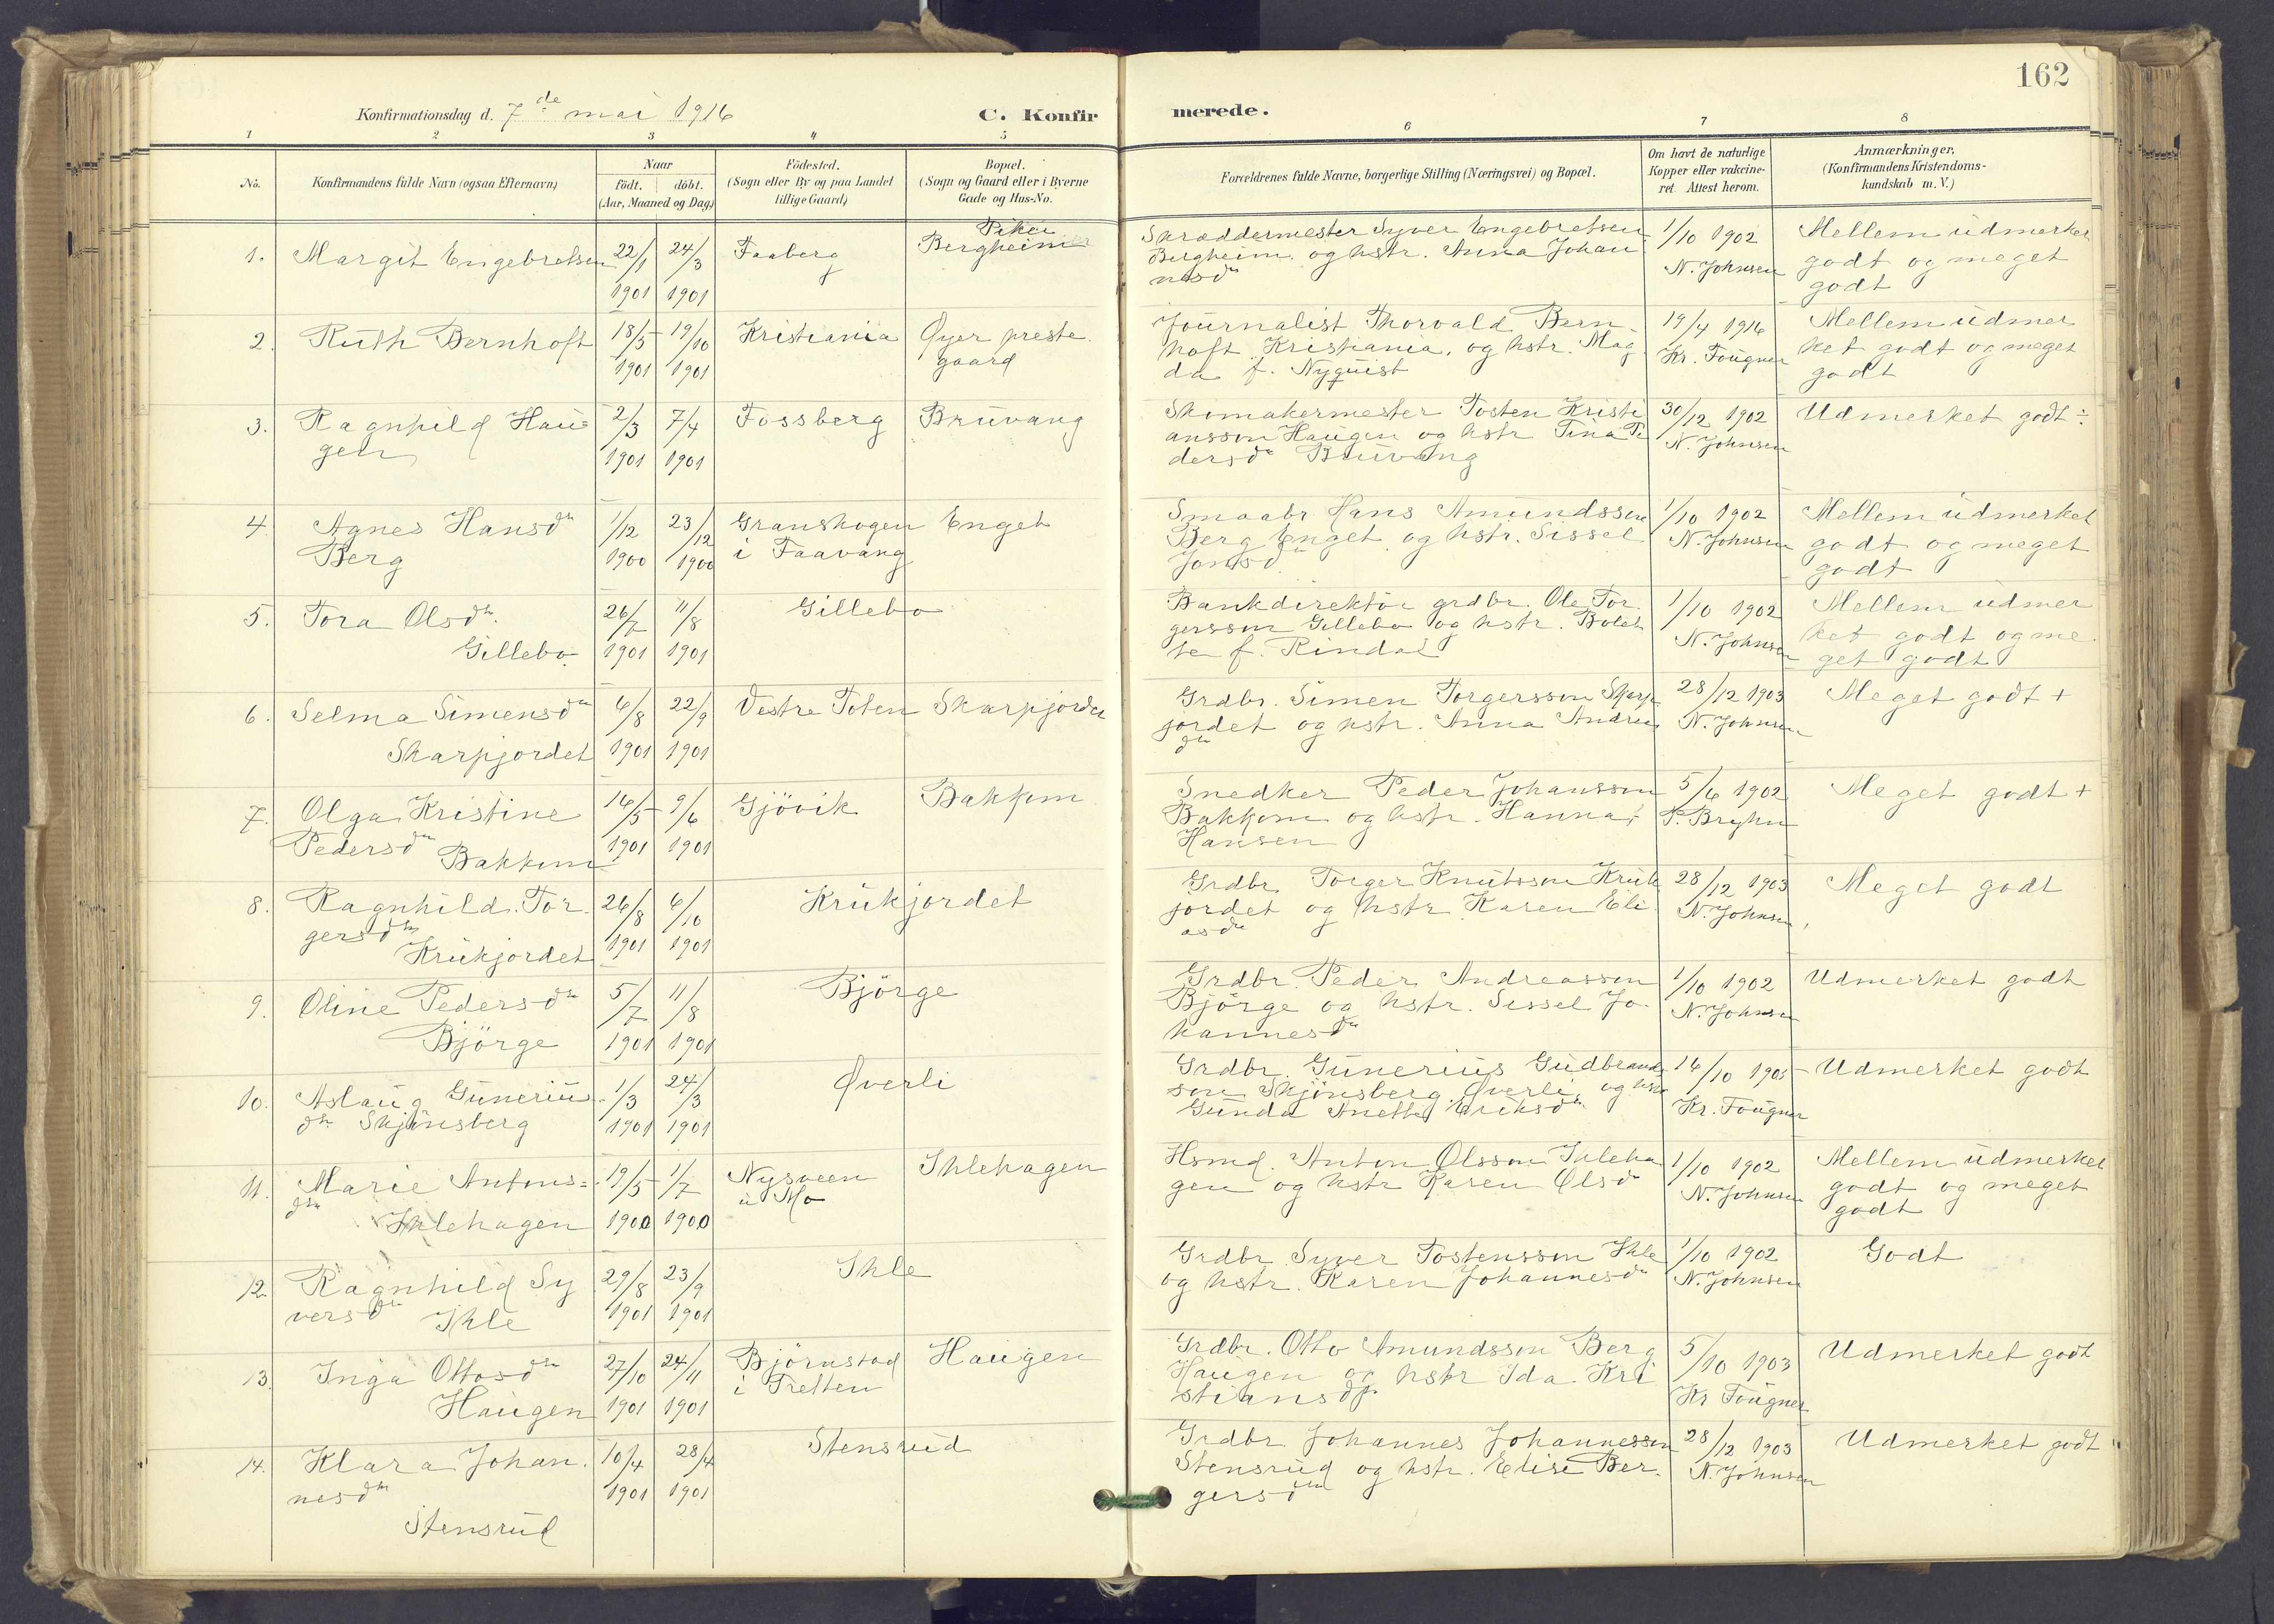 162
Konfirmationsdag d. 7de mai 1916
C. Konfirmerede.
1 2 3 4 5 6 7 8
No.
Konfirmandens fulde Navn (ogsaa Efternavn)
Naar
födt. döbt.
(Aar, Maaned og Dag)
Födested.
(Sogn eller By og paa Landet
tillige Gaard)
Bopæl.
(Sogn og Gaard eller i Byerne
Gade og Hus-No.
Forældrenes fulde Navne, borgerlige Stilling (Næringsvei) og Bopæl.
Om havt de naturlige
Kopper eller vakcine-
ret. Attest herom.
Anmærkninger.
(Konfirmandens Kristendoms-
kundskab m. V.)
Piker
1. Margit Engebretsen 22/1 1901 24/3 1901 Faaberg Bergheim
Skræddermester Syver Engebretsen
Bergheim og hstr. Anna Johan
nesdtr
1/10 1902
N. Johnsen
Mellem udmerket
godt og meget
godt
2. Ruth Bernhoft 18/5 1901 19/10 1901 Kristiania Øyer preste
gaard
Journalist Thorvald Bern-
hoft Kristiania, og hstr. Mag
da f. Nyquist
19/4 1916
Kr. Fougner
Mellem udmer
ket godt og meget
godt
3. Ragnhild Hau=
gen
2/3 1901 7/4 1901 Fossberg Bruvang
Skomakermester Tosten Kristi
ansson Haugen og hstr Tina Pe
dersdr Bruvang
30/12 1902
N. Johnsen
Udmerket godt ÷
4. Agnes Hansdtr
Berg
1/12 1900 23/12 1900 Granskogen
i Faavang
Enget
Smaabr Hans Amundssen
Berg Enget og hstr. Sissel
Jonsdtr
1/10 1902
N. Johnsen
Mellem udmerket
godt og meget
godt
5. Tora Olsdtr.
Gillebo
26/7 1901 11/8 1901 Gillebo
Bankdirektör grdbr. Ole Tor
gersson Gillebo og hstr. Bolet
te f. Rindal
1/10 1902
N. Johnsen
Mellem udmer
ket godt og me
get godt
6. Selma Simensdtr
Skarpjordet
6/8 1901 22/9 1901 Vestre Toten Skarpjordet
Grdbr. Simen Torgersson Skarp
jordet og hstr. Anna Andreas
dtr
28/12 1903
N. Johnsen
Meget godt +
7. Olga Kristine
Pedersdtr Bakkom
16/5 1901 9/6 1901 Gjövik Bakkom
Snedker Peder Johansson
Bakkom og hstr. Hanna f.
Hansen
5/6 1902
P. Bryhn
Meget godt +
8. Ragnhild Tor
gersdtr
Krukjordet
26/8 1901 6/10 1901 Krukjordet
Grdbr. Torger Knutsson Kruk
jordet og hstr Karen Eli
asdtr
28/12 1903
N. Johnsen
Meget godt
9. Oline Pedersdtr
Björge
5/7 1901 11/8 1901 Björge
Grdbr. Peder Andreasson
Björge og hstr. Sissel Jo-
hannesdtr
1/10 1902
N. Johnsen
Udmerket godt
10. Aslaug Gunerius
dtr Skjönsberg
1/3 1901 24/3 1901 Øverli
Grdbr. Gunerius Gudbrands
son Skjönsberg Øverli og hstr
Gunda Anette Eriksdtr
16/10 1905
Kr. Fougner
Udmerket godt
11. Marie Antons=
dtr
Ihlehagen
19/5 1900 1/7 1900 Nysveen
i Mo
Ihlehagen
Hsmd. Anton Olsson Ihleha
gen og hstr Karen Olsdr
1/10 1902
N. Johnsen
Mellem udmerket
godt og meget
godt
12. Ragnhild Sy
versdtr Ihle
29/8 1901 23/9 1901 Ihle
Grdbr Syver Tostensson Ihle
og hstr. Karen Johannesdtr
1/10 1902
N. Johnsen
Godt
13. Inga Ottosdtr
Haugen
27/10 1901 24/11 1901 Björnstad
i Tretten
Haugen
Grdbr. Otto Amundsson Berg
Haugen og hstr Ida Kri
stiansdtr
5/10 1903
Kr Fougner
Udmerket godt
14. Klara Johan
nesdtr
Stensrud
10/4 1901 28/4 1901 Stensrud
Grdbr Johannes Johannesson
Stensrud og hstr. Elise Ber-
gersdtr
28/12 1903
N. Johnsen
Udmerket godt